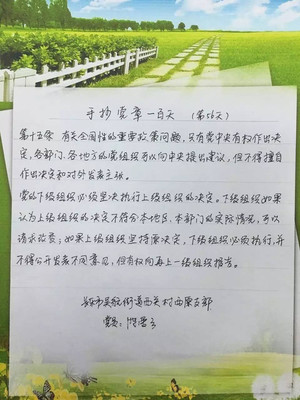 手抄党章一百天 (第56天)
第十五条 有关全国性的重大政策问题,只有党中央有权作出决
定,各部门、各地方的党组织可以向中央提出建议,但不得擅自
作出决定和对外发表主张。
党的下级组织必须坚决执行上级组织的决定。下级组织如果
认为上级组织的决定不符合本地区、本部门的实际情况,可以
请求改变;如果上级组织坚持原决定,下级组织必须执行,并
不得公开发表不同意见,但有权向再上一级组织报告。
街道西关村西党支部
党员: